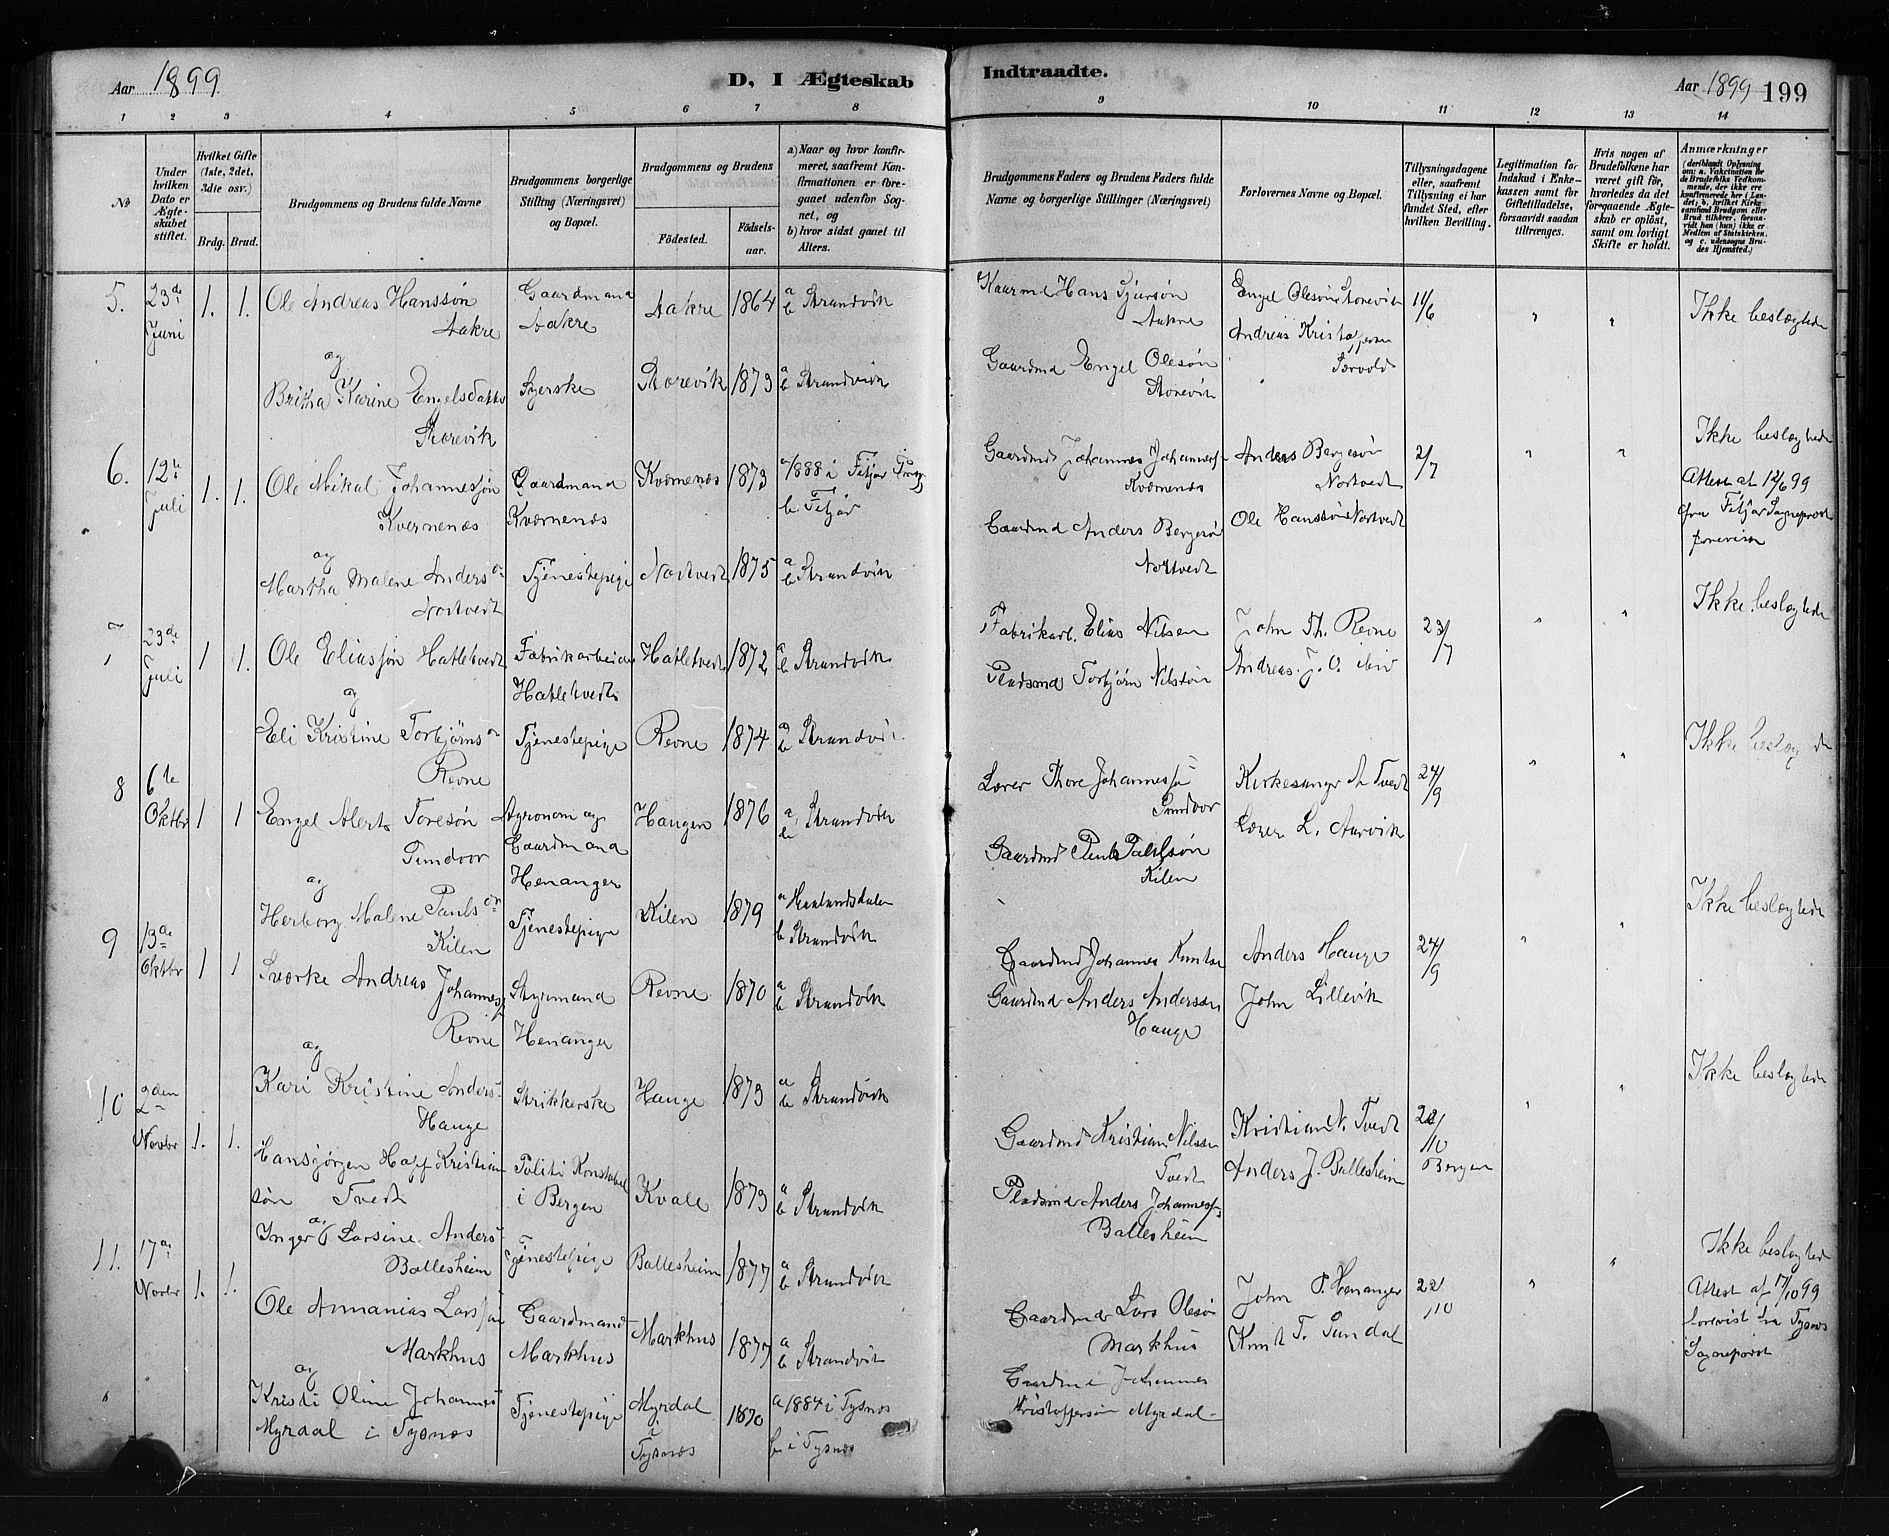 Aar 1899
D, I Ægteskab Indtraadte.
Aar 1899 199
1 2 3 4 5 6 7 8 9 10 11 12 13 14
No
Under hvilken Dato er Ægteskabet stiftet.
Hvilket Gifte (1ste, 2det, 3die osv.)
Brdg. Brud.
Brudgommens og Brudens fulde Navne
Brudgommens borgerlige Stilling (Næringsvei) og Bopæl.
Brudgommens og Brudens
Födested.
Födselsaar.
a) Naar og hvor konfirmeret, saafremt Konfirmationen er foregaaet udenfor Sognet, og
b) hvor sidst gaaet til Alters.
Brudgommens Faders og Brudens Faders fulde Navne og borgerlige Stillinger (Næringsvei)
Forlovernes Navne og Bopæl.
Tillysningsdagene eller, saafremt Tillysning ei har fundet Sted, efter hvilken Bevilling.
Legitimation for Indskud i Enkekassen samt for Giftetilladelse, forsaavidt saadan tiltrænges.
Hvis nogen af Brudefolkene har været gift för, hvorledes da det foregaaende Ægteskab er oplöst, samt om lovligt Skifte er holdt.
Anmærkninger
(deriblandt Oplysning om: a. Vakcination for de Brudefolks Vedkommende, der ikke ere konfirmerede her i Landet; b. hvilket Kirkesamfund Brudgom eller Brud tilhörer, forsaavidt han (hun) ikke er Medlem af Statskirken, og c. udensogns Brudes Hjemsted.)
5. 23de Juni 1. 1. Ole Andreas Hanssøn Aakre Gaardmand Aakre Aakre 1864 a b Strandvik
Hans Aakre Engel Olesøn Storevik 11/6 " " Ikke beslægtede
Andreas Kristoffersen Sævold
og
Britha Karine Engelsdatter Storevik Syerske Storevik 1873 a b Strandvik
Gaardmd Engel Olesøn Storevik
6. 12te Juli 1. 1. Ole Mikal Johannessøn Kvernenæs Gaardmand Kværnenæs Kværnenæs 1873 a 1888 i Fitjar b Fitjar
Gaardmd Johannes Johanness. Kværnenæs Anders Bergesøn Nortvedt 2/7 " " Ikke beslægtede
Attest af 12/6 99 fra Fitjar Sogneprest forevist
og
Martha Malene Andersdr Nortvedt Tjenestepige Nortvedt 1875 a b Strandvik
Gaardmd Anders Bergesøn Nortvedt Ole Hanssøn Nortvedt
7 23de Juli 1 1. Ole Eliassøn Hatletvedt Fabrikarbeider Hatletvedt Hatletvedt 1872 a b Strandvik
Fabrikarb. Elias Nilsen John Th. Revne 23/7 " " Ikke beslægtede
og
Eli Kristine Torbjørnsdr Revne Tjenestepige Revne 1874 a b Strandvik
Pladsmd Torbjørn Nilssøn Andreas J. O.
8 6te Oktbr 1 1 Engel Alert Toresøn Sundvor Agronom og Gaardmand Henanger Haugen 1876 a b Strandvik
Lærer Thore Johannessøn Sundvor Kirkesanger A Tvedt 24/9 " " Ikke beslægtede
Lærer L. Aarvik
og
Herborg Malene Paulsdr Kilen Tjenestepige Kilen 1879 a Haalandsdalen b Strandvik
Gaardmd Paul Paulsøn Kilen
9 13de Oktbr 1 1 Sværke Andreas Johanness. Revne Styrmand Henanger Revne 1870 a b Strandvik
Gaardmd Johannes Knutsen Anders Hauge 24/9 " " Ikke beslægtede
og
Kari Kristine Anders- Hauge Strikkerske Hauge 1873 a b Strandvik
Gaardmd Anders Andersen Hauge John Lillevik
10 2den Novbr 1. 1. Hansjørgen Kristiansøn Tvedt Politi Konstabel i Bergen Kvale 1873 a b Strandvik
Gaardmd Kristian Nilssøn Tvedt Kristian N. Tvedt 22/10 Bergen " " Ikke beslægtede
og
Inger Larsine Anders- Ballesheim Tjenestepige Ballesheim 1877 a b Strandvik
Pladsmd Anders Johanness. Ballesheim Anders J. Ballesheim
11. 17de Novbr 1. 1. Ole Annanias Larssøn Markhus Gaardmand Markhus Markhus 1877 a b Strandvik
Gaardmd Lars Olesøn Markhus John P. Henanger 22/10 " " Ikke beslægtede
Attest af 17/10 99 forevist fra Tysnes Sogneprest
og
Kristi Oline Johannes- Myrdal i Tysnæs Tjenestepige Myrdal i Tysnæs 1870 a 1884 i Tysnes b i Tysnæs
Gaardmd Johannes Kristoffersøn Myrdal Knut T. Sundal